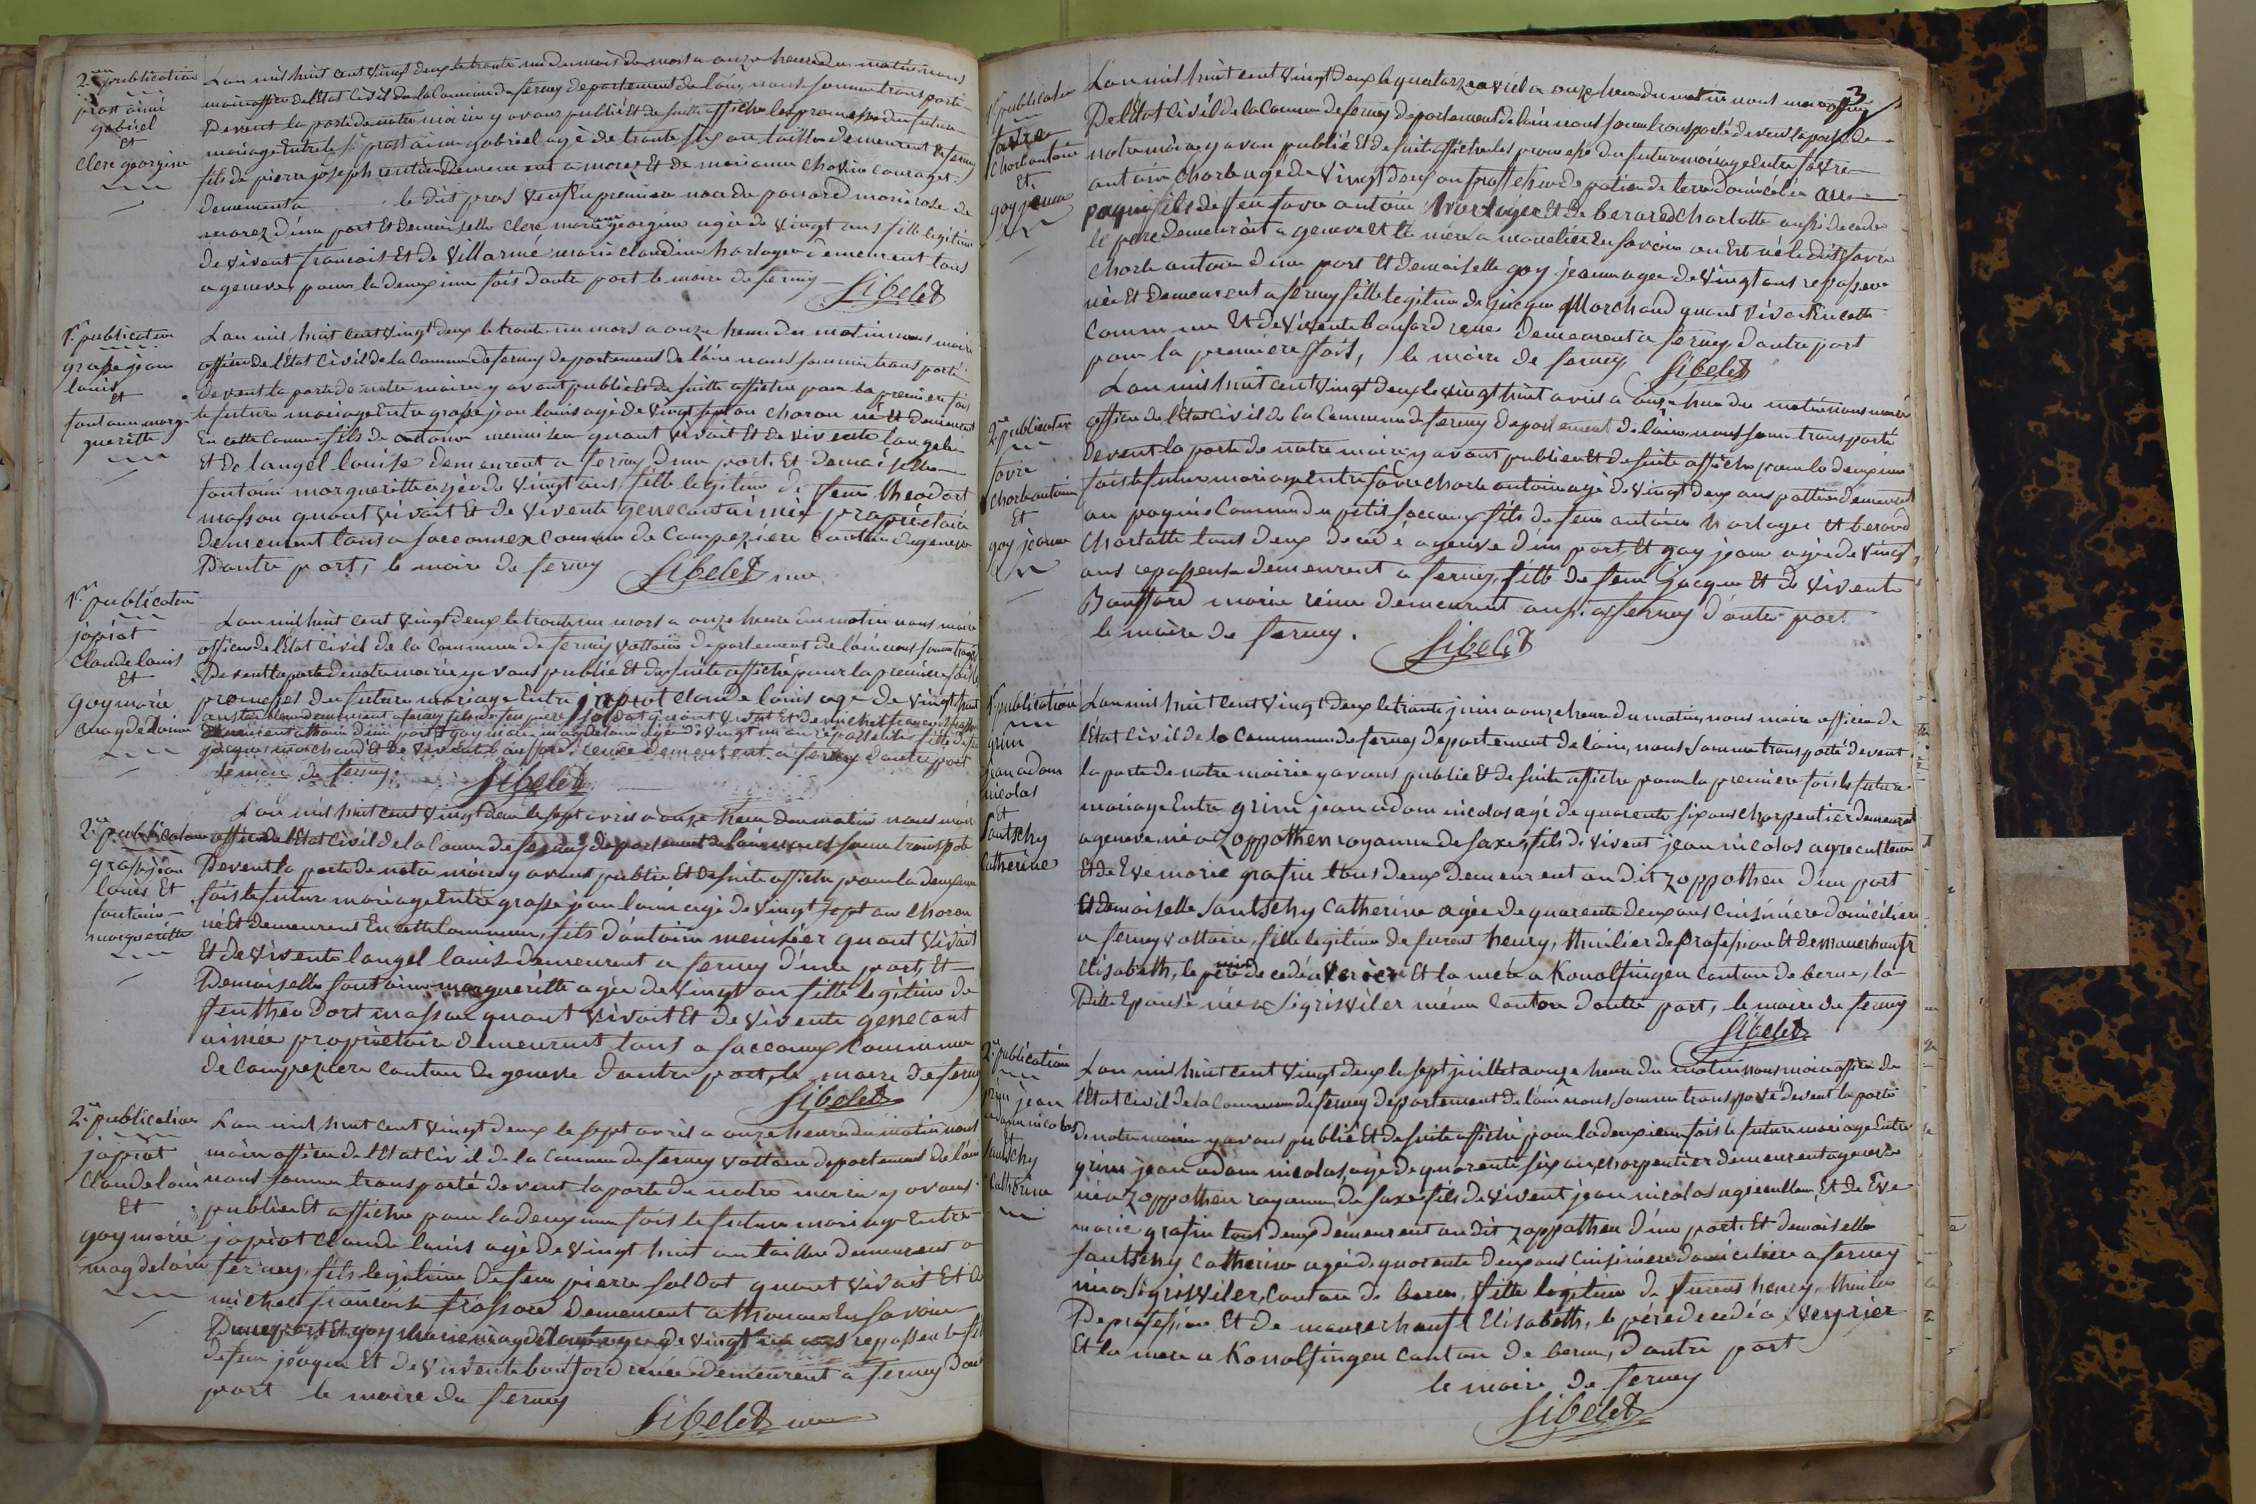 2.me publication
prost aimé
gabriel
et
Clerc georgine
L'an mil huit cent vingt deux le trente un du mois de mars a onze heure du matin nous
maire officier de l'Etat Civil de la Commune de ferney departement de l'ain, nous somme transporté
Devent la porte de notre mairie y avons publié Et de suitte affiché les promesse du futur
mariage Entre le Sr prost aimé gabriel agé de trente six an tailleur demeurent a ferney
fils de pierre joseph rentier Demeurent a morez Et de marianne
Demeurent a le dit prost veuf En premier noce de marie rose de
morez d'une part Et demoiselle Clerc marie georgine agée de vingt ans fille legitime
de vivent francois Et de Villarmé marie claudine horloger demeurent tous
a geneve, pour la deuxieme fois d'autre part le maire de ferney
Sibelet
1re publication
grosse jean
louis
et
fontaine marg-
gueritte
L'an mil huit cent vingt deux le trente un mars a onze heure du matin nous maire
officier de l'Etat Civil de la Commune de ferney departement de l'ain nous somme transporté
devent la porte de notre mairie y avons publié Et de suitte affiché pour la premier fois
le future mariage Entre grosse jean louis agé de vingt sept an charon né Et demeurent
En cette Commune fils de antoine menuisier quant vivait Et de vivente langel
Et de langel louise demeurent a ferney d'une part, Et demoiselle
fontaine margueritte agée de vingt ans, fille legitime de feu theodort
masson quant vivait Et de vivente genecant aimée propriétaire
demeurent tous a sacconnex commune de Compezière Canton de geneve
D'autre part, le maire de ferney Sibelet
1re publication
japiot
Claude louis
Et
goy marie
magdelaine
L'an mil huit cent vingt deux le trente un mars a onze heure du matin nous maire
officier de l'Etat Civil de la Commune de ferney voltaire departement de l'ain nous somme transporté
Devent la porte de notre mairie y avons publié Et de suitte affiché pour la premiere fois les
promesses de future mariage Entre japiot claude louis agé de vingt huit
jacque marchand Et de vivente boufford renée demeurent a ferney d'autre part
le maire de ferney. Sibelet
2.me publication
grosse jean
louis Et
fontaine
margueritte
L'an mil huit cent vingt deux le sept avril a onze heure du matin nous maire
officier de l'Etat Civil de la Commune de ferney departement de l'ain nous somme transporté
Devent la porte de notre mairie y avons publié Et de suite affiché pour la deuxieme
fois le future mariage Entre grosse jean louis agé de vingt sept an charon
né Et demeurent En cette Commune, fils d'antoine menisier quant vivait
Et de vivente langel louise demeurent a ferney d'une part, Et
Demoiselle fontaine margueritte agée de vingt an fille legitime de
feu theodort masson quant vivait Et de vivente genecant
aimée propriètaire demeurent tous a sacconex Commune
de Compezière canton de geneve d'autre part, le maire de ferney
Sibelet
2.me publication
japiot
Claude louis
Et
goy marie
magdelaine
L'an mil huit cent vingt deux le sept avril a onze heure du matin nous
maire officier de l'Etat Civil de la Commune de ferney voltaire departement de l'ain
nous somme transporté devent la porte de notre mairie y avons
publié Et affiché pour la deuxieme fois le future mariage Entre
japiot claude louis agé de vingt huit an tailleur demeurent a
ferney, fils legitime de feu pierre soldat quant vivait Et de
michel françoise frossard demeurent a thonon En savoie
D'une part Et goy marie magdelaine agée de vingt un ans repasseuse fille
de feu jacque Et de vivente boufford renée demeurent a ferney d'autre
part le maire de ferney
Sibelet
3
1re publication
favre
Charle antoine
Et
goy jeanne
L'an mil huit cent vingt deux le quatorze avril a onze heure du matin nous maire officier
De l'Etat Civil de la Commune de ferney departement de l'ain nous somme transporté devent la porte de
notre mairie y avons publié Et de suitte affiché les promesse du future mariage Entre favre
antoine charle agé de vingt deux an potier de terre domicilié au
paquis fils de feu favre antoine horloger Et de berard charlotte aussi decedé
le pere demeurait a geneve Et la mère a En savoie ou Est né le dit favre
charle antoine d'une part Et demoiselle goy jeanne agée de vingt ans repasseuse
née Et demeurent a ferney fille legitime de jacque Marchand quant vivait En cette
commune Et de vivente boufford renée demeurent a ferney d'autre part
pour la premiere fois, le maire de ferney Sibelet
2.me publication
favre
Charle antoine
Et
goy jeanne
L'an mil huit cent vingt deux le vingt huit avril a onze heure du matin nous maire
officier de l'Etat Civil de la Commune de ferney departement de l'ain, nous somme transporté
Devent la porte de notre mairie y avons publié Et de suite affiché pour la deuxieme
fois le future mariage Entre favre charle antoine agé de vingt deux ans pottier demeurent
au paquis Commune du petit saconnex fils de feu antoine horloger Et berard
charlotte tous deux decedé a geneve d'une part Et goy jeanne agée de vingt
ans repasseuse demeurent a ferney, fille de feu jacque Et de vivente
Boufford marie reine demeurent aussi a ferney d'autre part
le maire de ferney. Sibelet
1re publication
grim
jean adam
nicolas
et
Santschy
Catherine
L'an mil huit cent vingt deux le trente juin a onze heure du matin, nous maire officier de
l'Etat Civil de la Commune de ferney departement de l'ain, nous somme transporté devent
la porte de notre mairie y avons publié Et de suite affiché pour la premiere fois le future
mariage Entre grim jean adam nicolas agé de quarente six ans charpentier demeurent
a geneve né a Zoppothen royaume de saxe, fils de vivent jean nicolas agriculteur
Et de Eve marie grafin tous deux demeurent au dit Zoppothen d'une part
Et demoiselle Santschy Catherine agée de quarente deux ans cuisinière domiciliée
a ferney voltaire, fille legitime de furent henry, thuilier de profession Et de maurerhauft
Elisabeth, le père decedé a Verier Et la mère a Konolfingen canton de berne, la
Ditte Epouse née a Sigriswiler même canton d'autre part, le maire de ferney
Sibelet
2.me publication
grim jean
adam nicolas
et
Santschy
Catherine
L'an mil huit cent vingt deux le sept juillet a onze heure du matin nous maire officier de
l'Etat Civil de la Commune de ferney departement de l'ain nous somme transporté devent la porte
de notre mairie y avons publié Et de suite affiché pour la deuxieme fois le future mariage Entre
grim jean adam nicolas, agé de quarente six an, charpentier demeurent a geneve
né a Zoppothen royaume de saxe fils de vivent jean nicolas agriculteur, Et de Eve
marie grafin tous deux demeurent au dit Zoppothen d'une part. Et demoiselle
Santschy Catherine agée de quarente deux ans cuisinière domiciliée a ferney
née a Sigriswiler, Canton de berne, fille legitime de furent henry, thuilier
De profession Et de maurerhauft Elisabeth, le père decedé a Veyrier
Et la mere a Konolfingen canton de berne, d'autre part
le maire de ferney
Sibelet